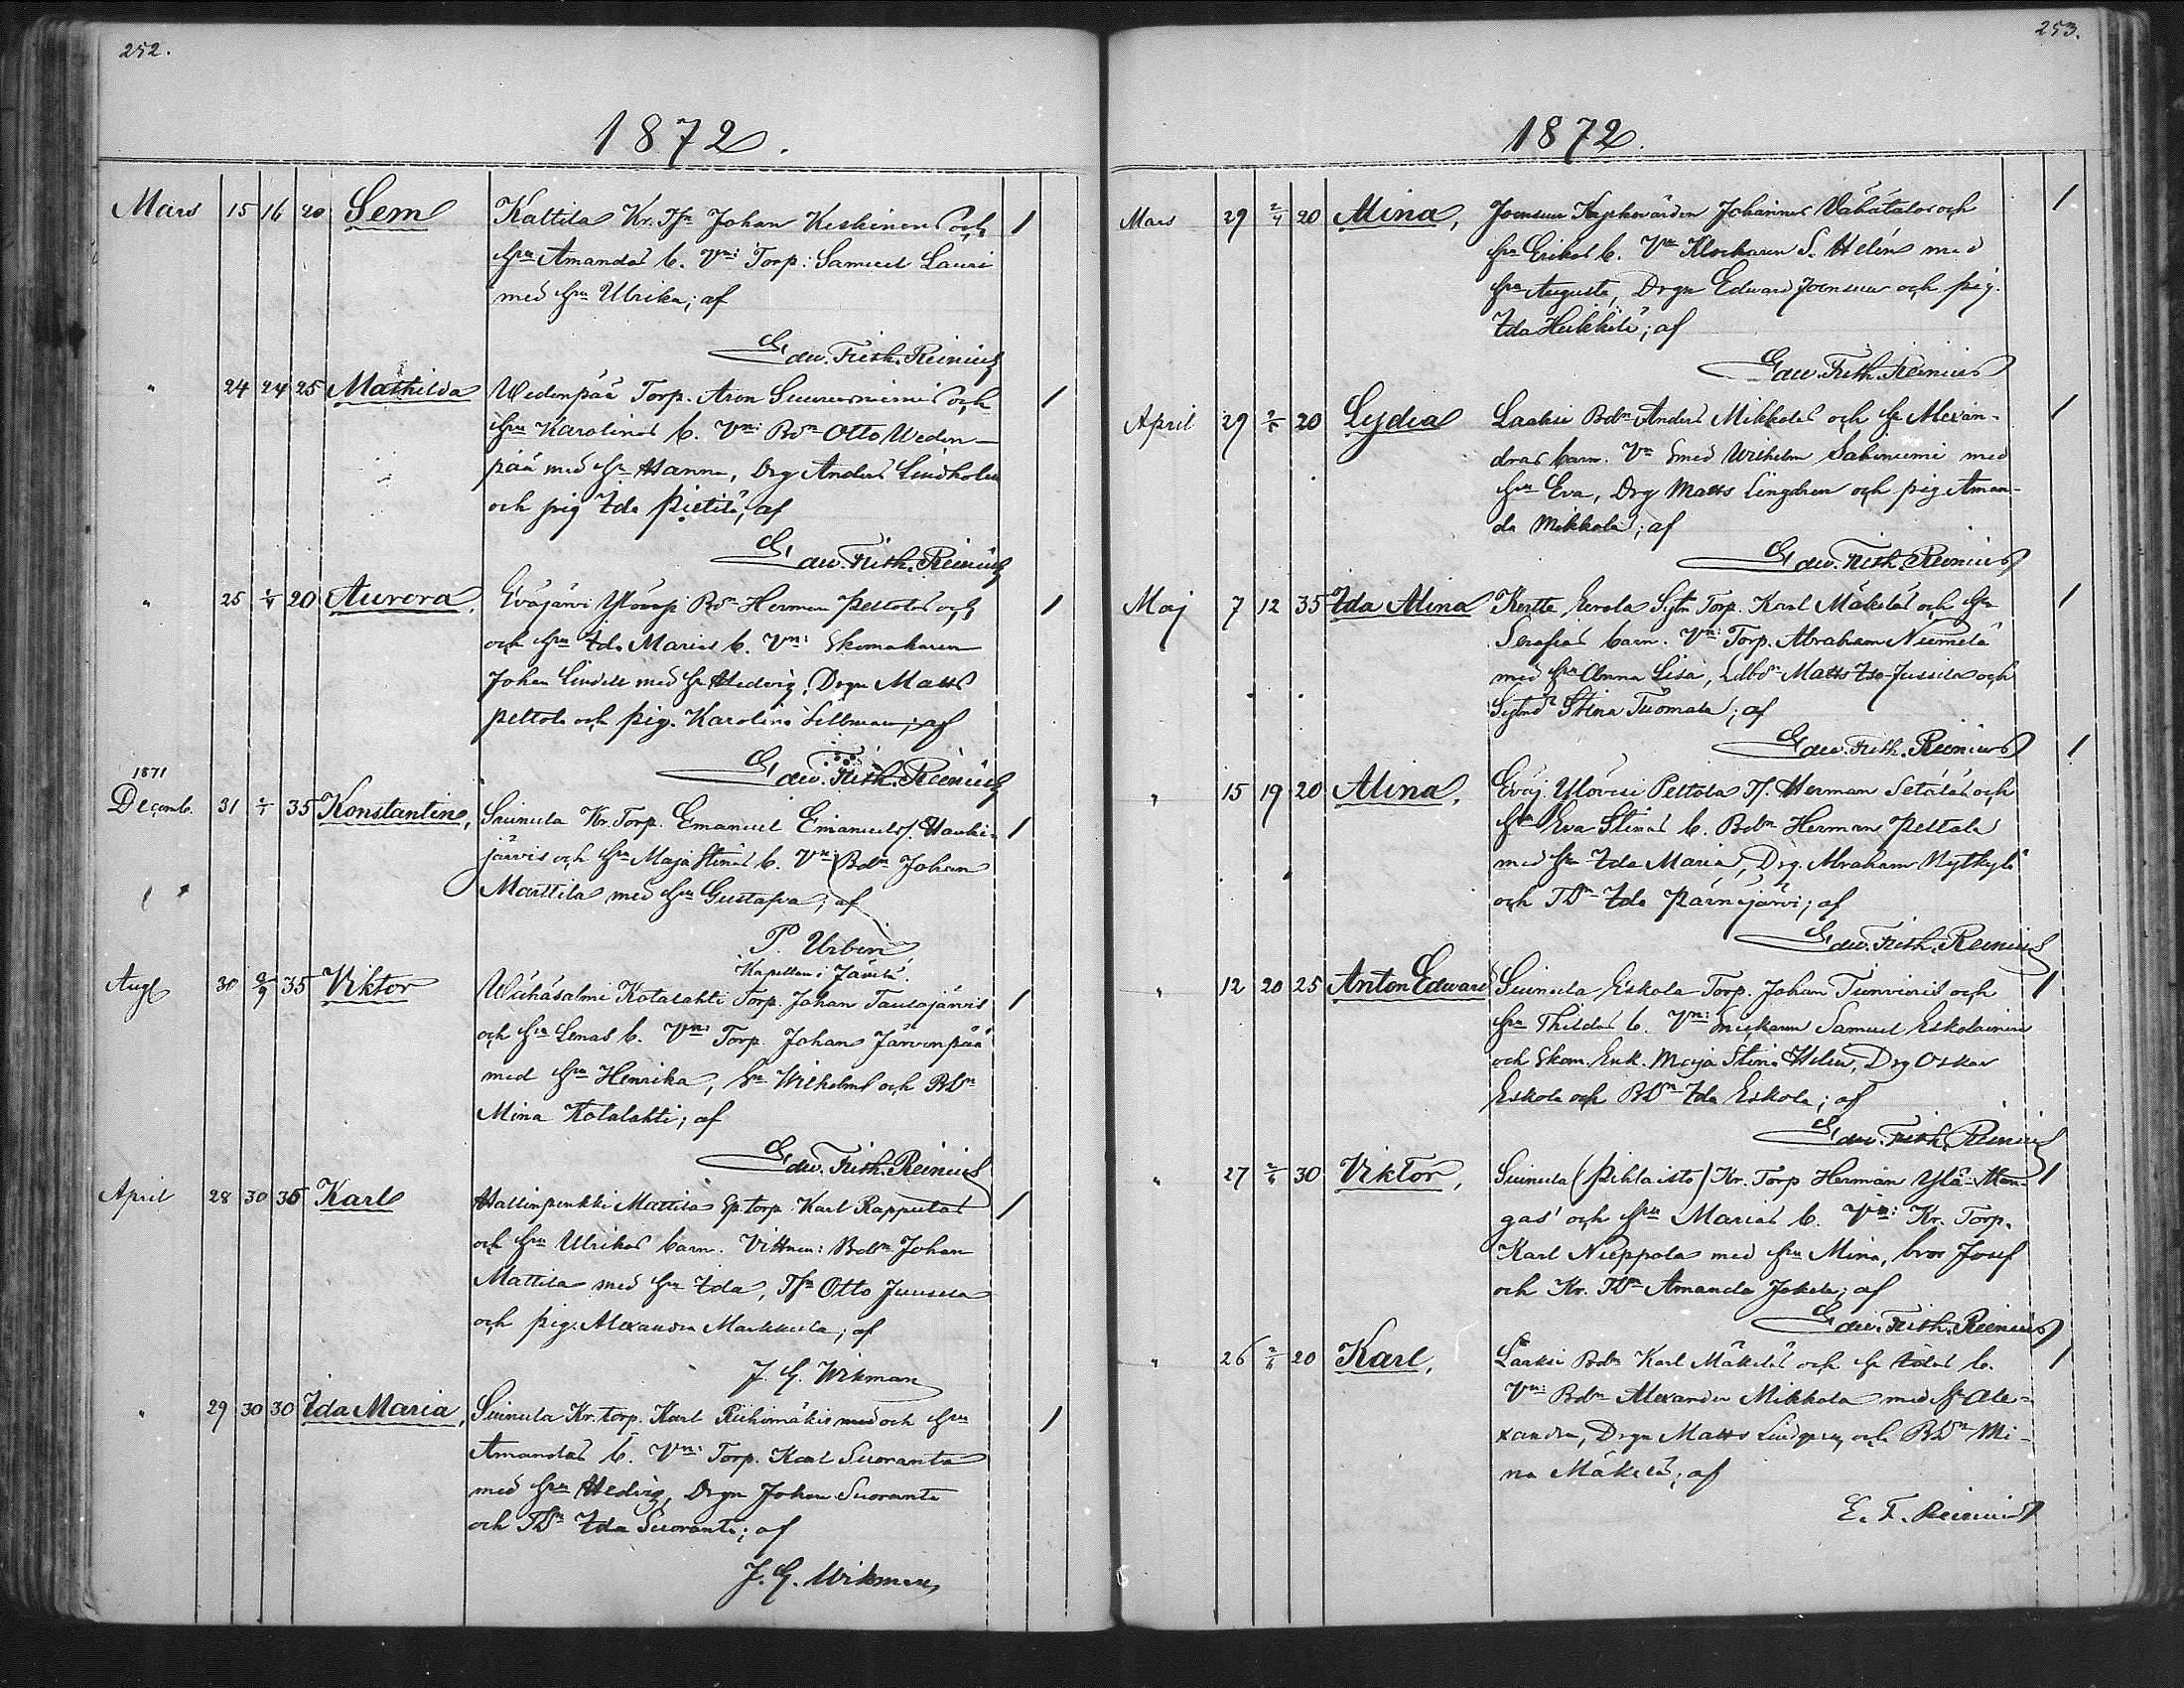 252.
1872.
Mars 15 16 20 Sem Kattila Kr. Tfr Johan Keskinens och
hu Amandas b. Vn: Torp: Samuel Lauri
med hu Ulrika; af
Edw. Frith. Reinius
" 24 24 25 Mathilda Wedenpää Torp. Aron Suuruniemis och
hu Karolinas b. Vn: Bdn Otto Weden-
pää med hu Hanna, Drg Anders Lindholm
och pig Ida Pietilä; af
Edw. Frith. Reinius
" 25 1/4 20 Aurora, Eväjärvi Bdn Herman Peltolas och
och hu Ida Marias b. Vn: Skomakaren
Johan Lindell med hu Hedvig, Drgn Matts
Peltola och pig. Karolina Sellman; af
Edw. Frith. Reinius
1871
Decemb. 31 2/1 35 Konstantin, Suinula Kr. Torp. Emanuel Emanuels/ Hauki-
järvis och hu Maja Stinas b. Vn: Bdn Johan
Marttila med hu Gustafva; af
P. Urbin
Kapellan i
Aug 30 2/9 35 Viktor Wähäsalmi Kotalahti Torp. Johan Taulajärvis
och hu Lenas b. Vn: Torp. Johan Järvenpää
med hu Henrika, Wilhelm och BDn
Mina Kotalahti; af
Edw. Frith. Reinius
April 28 30 35 Karl Hallinpenkki Mattilas Sp. torp. Karl Rappulas
och hu Ulrikas barn. Vittnen: Bdn Johan
Mattila med hu Ida, Tfr Otto Juusela
och pig. Alexandra Markkula; af
J. G. Wikman
" 29 30 30 Ida Maria, Suinula Kr. torp. Karl Riihimäkis med och hu
Amandas b. Vn: Torp. Karl Suoranta
med hu Hedvig, Drgn Johan Suoranta
och TDn Ida Suoranta; af
J. G. Wikman
253.
1872.
Mars 29 2/4 20 Alina, Joensuu Johannes Vähätalos och
hu Erikas b. Vn Klockaren S. Helén med
hu Augusta, Drgn Edward Joensuu och pig.
Ida Heikkilä; af
Edw. Frith. Reinius
April 29 2/5 20 Lydia Laaksi Bdn Anders Mikkolas och hu Alexan-
dras barn. Vn Smed Wilhelm Saloniemi med
hu Eva, Drg Matts Lingdren och pig Aman-
da Mikkola; af
Edw. Frith. Reinius
Maj 7 12 35 Ida Alina Kertte Eerola Sytn Torp. Karl Mäkeläs och hu
Serafias barn. Vn: Torp. Abraham Niemelä
med hu Anna Lisa, Matts Iso-Jussila och
Stina Tuomala; af
Edw. Frith. Reinius
" 15 19 20 Alina, Eväj. Ylövesi Peltola Tf. Herman Setäläs och
hu Eva Stinas b. Bdn Herman Peltola
med hu Ida Maria, Drg. Abraham Nytkylä
och TDn Ida Pärnäjärvi; af
Edw. Frith. Reinius
" 12 20 25 Anton Edward Suinula Eskola Torp. Johan Tunvioris och
hu Thildas b. Vn: Snickaren Samuel Eskolainen
och Skom. Enk. Maja Stina Helen, Drg Oskar
Eskola och BDn Ida Eskola; af
Edw. Frith. Reinius
" 27 2/6 30 Viktor, Suinula (Pihlaisto) Kr. Torp Herman Ylä-Man-
gas' och hu Marias b. Vn: Kr. Torp.
Karl Nieppola med hu Mina, bror Josef
och Kr. TDn Amanda Jokela; af
Edw. Frith. Reinius
" 26 2/6 20 Karl, Laaksi Bdn Karl Mäkeläs och hu Idas b.
Vn: Bdn Alexander Mikkola med hu Ale-
xandra, Drgn Matts Lindgren och BDn Mi-
na Mäkelä; af
E. F. Reinius